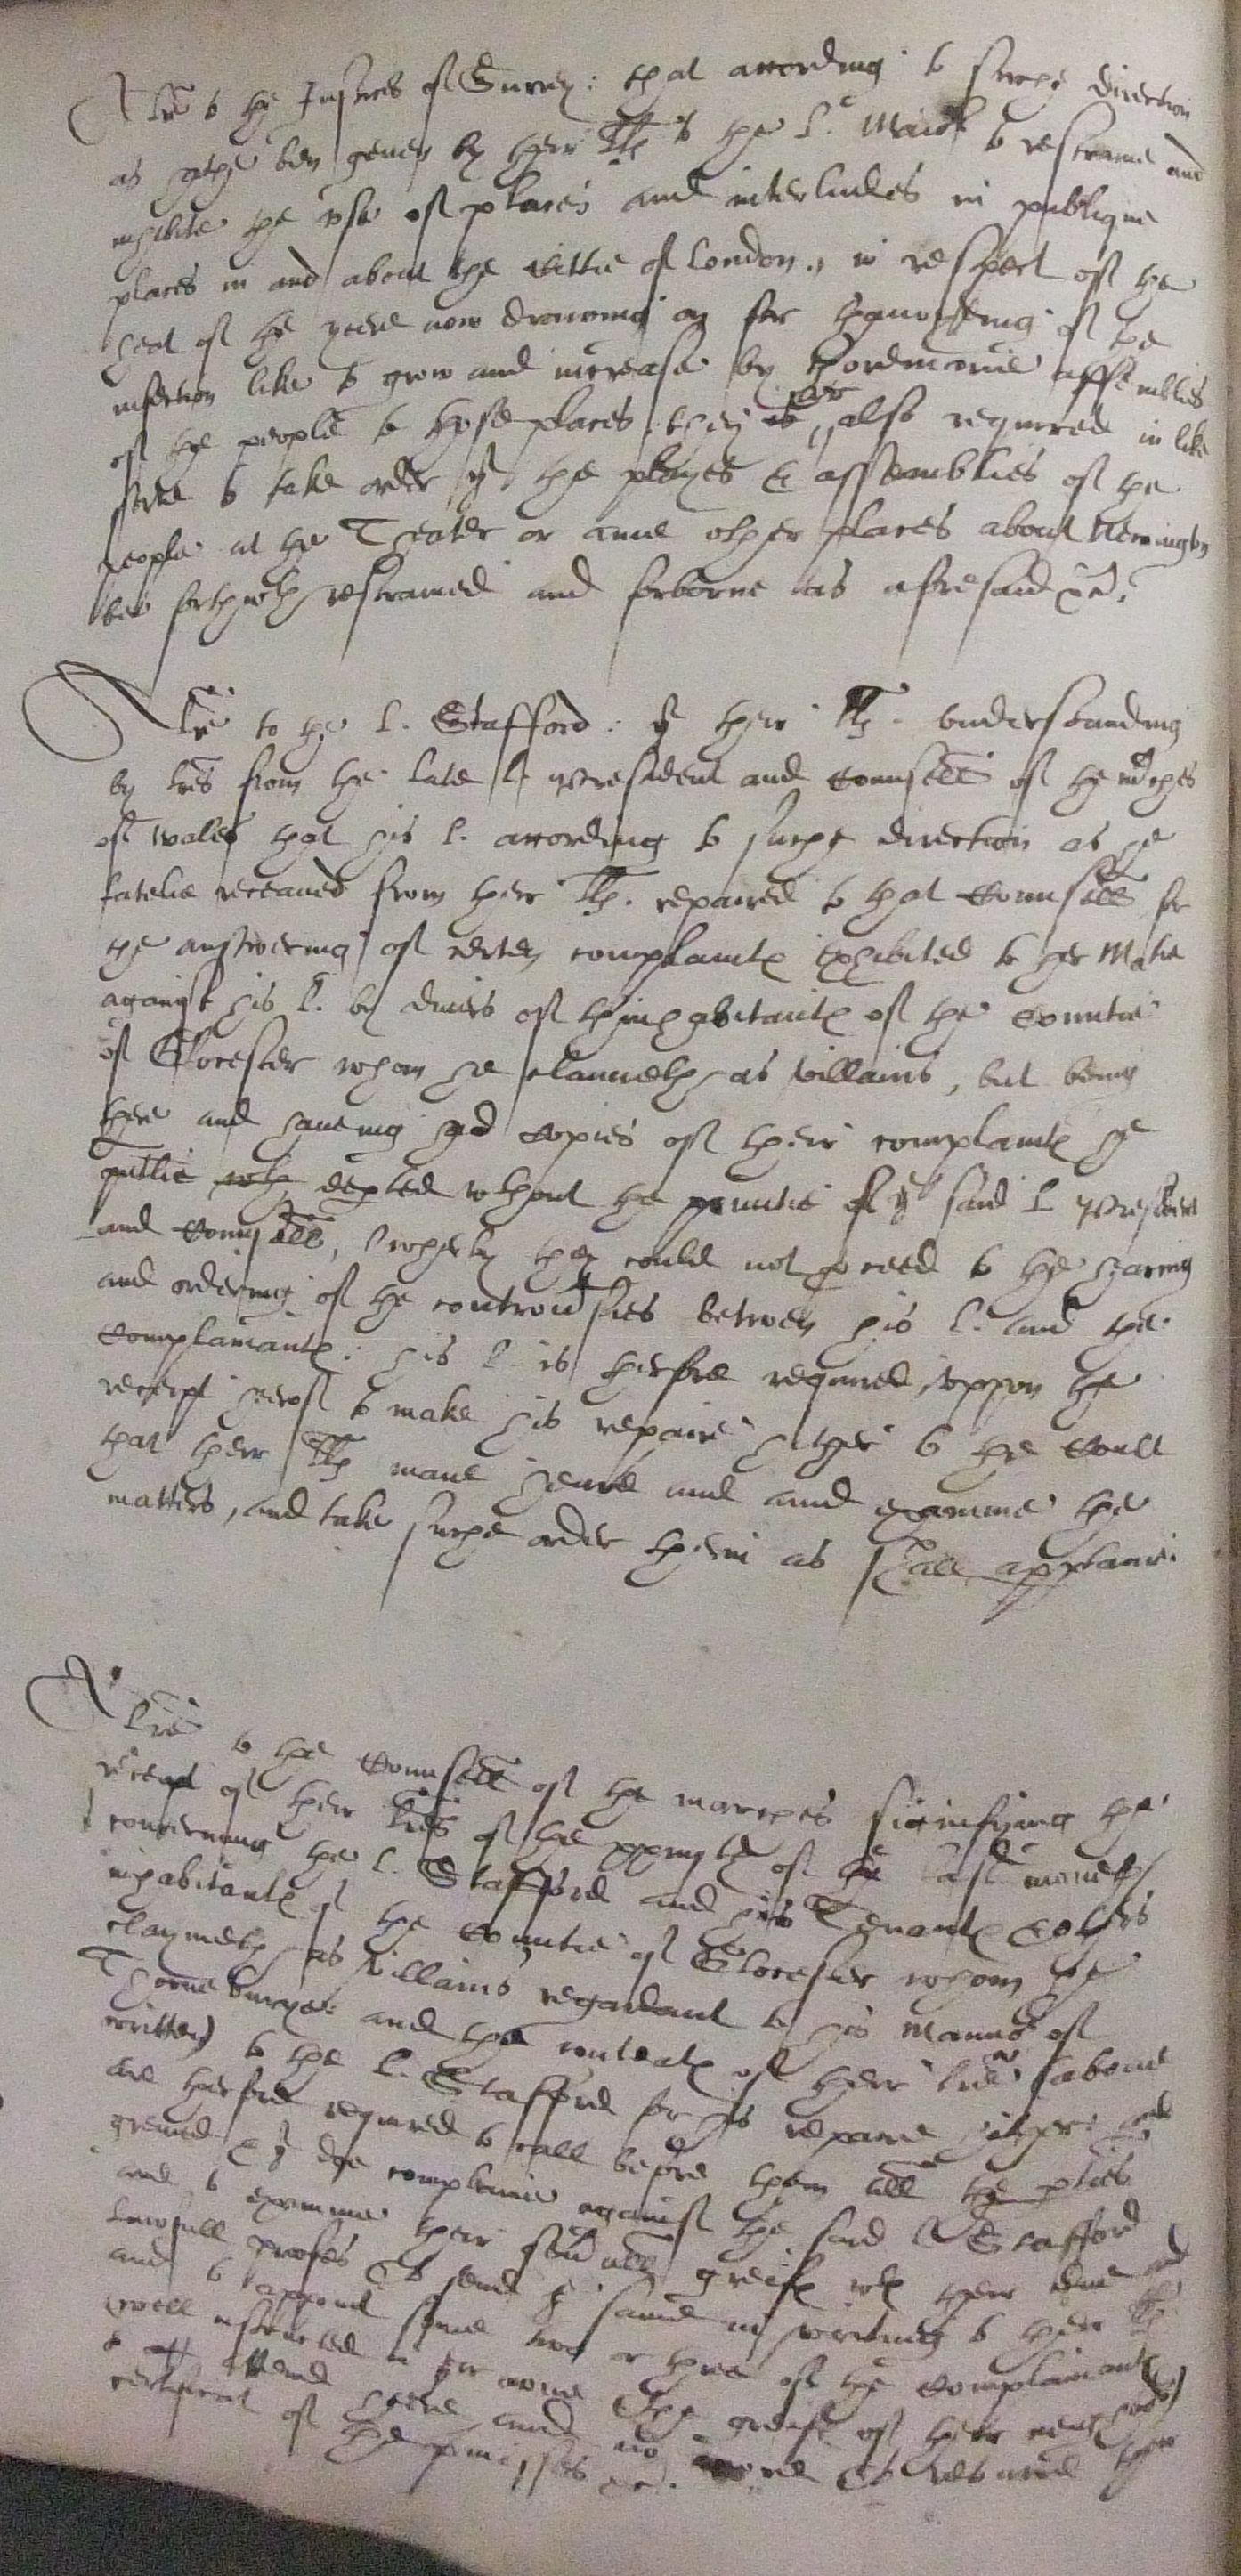 A lre to the Justices of Surrey: that according to suche direction
as hathe ben geven by their Lps to the L. Maior to restraine and
inhibite the use of plaies and interludes in publique
places in and about the Cittie of London, in respect of the
heat of the yeere now drawing on for thavoydeing of the
infection like to grow and increase by thordinarie assemblies
of the people to those places, they is are also required in like
sorte to take order yt the playes & assemblies of the
people at the Teater or anie other places about Newington
bee forthwth restrained and forborne as aforesaid &c.
A lre to the L. Stafford: yt their Lps. understanding
by lres from the late L. President and Counsell of the Marches
of Wales that his L. according to suche direction as he
latelie receaved from their Lps. repaired to that Counsell for
the answering of certen complaintes exhibited to her Matie
against his L. by divers of thinhabitantes of the Countie
of Glocester whom he claimeth as villains, but being
there and having had copies of their complaintes he
depted wthout the privitie of ye said L. President
and Counsell, wherby they could not pceed to the hearing
and ordering of the controversies betwen his L. and the
Complainantes: his L. is therfore required, uppon the
receipt herof to make his repaire hither to the Court
that their Lps maie heare and examine the
matters, and take suche order therin as shall appertaine.
A lre to the Counsell of the marches signifying the
receipt of their lres of the of the last moneth
concerning the L. Stafford and his Tenantes & others
inhabitantes of the Countie of Glocester whom he
claymeth as villains regardant to his Mannor of
Thornebury: and the contentes of their lre (above
written) to the L. Stafford for his repaire hither:
are therfore required to call before them all the pties
greived & yt doe complaine against the said L Stafford
and to examine their severall greifes wth their due and
lawfull proofes & to send ye same in writing to their Lps
and to appoint some two or three of the Complainantes
well instructed in their owne & the greifes of their
to attend here, and no more & to returne their
certificat of the pmisses &c.